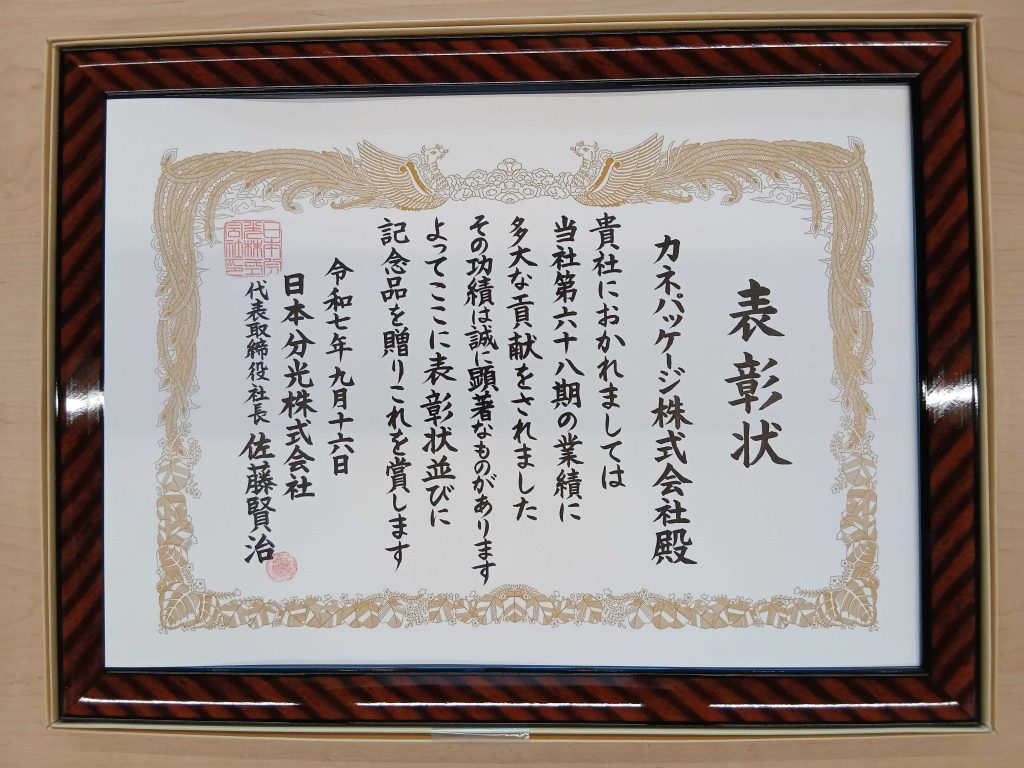 表彰状
カネパッケージ株式会社殿
貴社におかれましては
当社第六十八期の業績に
多大な貢献をされました
その功績は誠に顕著なものがあります
よってここに表彰状並びに
記念品を贈りこれを賞します
令和七年九月十六日
日本分光株式会社
代表取締役社長 佐藤賢治
日本分光株式会社印